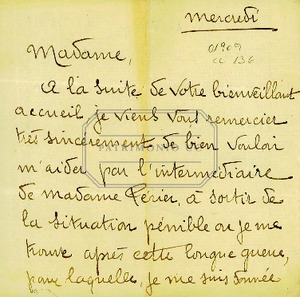 mercredi
01909
cc 136
Madame,
A la suite de votre bienveillant
accueil je viens vous remercier
très sincèrement de bien vouloir
PATRIMONIO
m'aider par l'intermédiaire
de madame Périer, à sortir de
la situation pénible ou je me
trouve après cette longue
pour laquelle, je me suis donnée